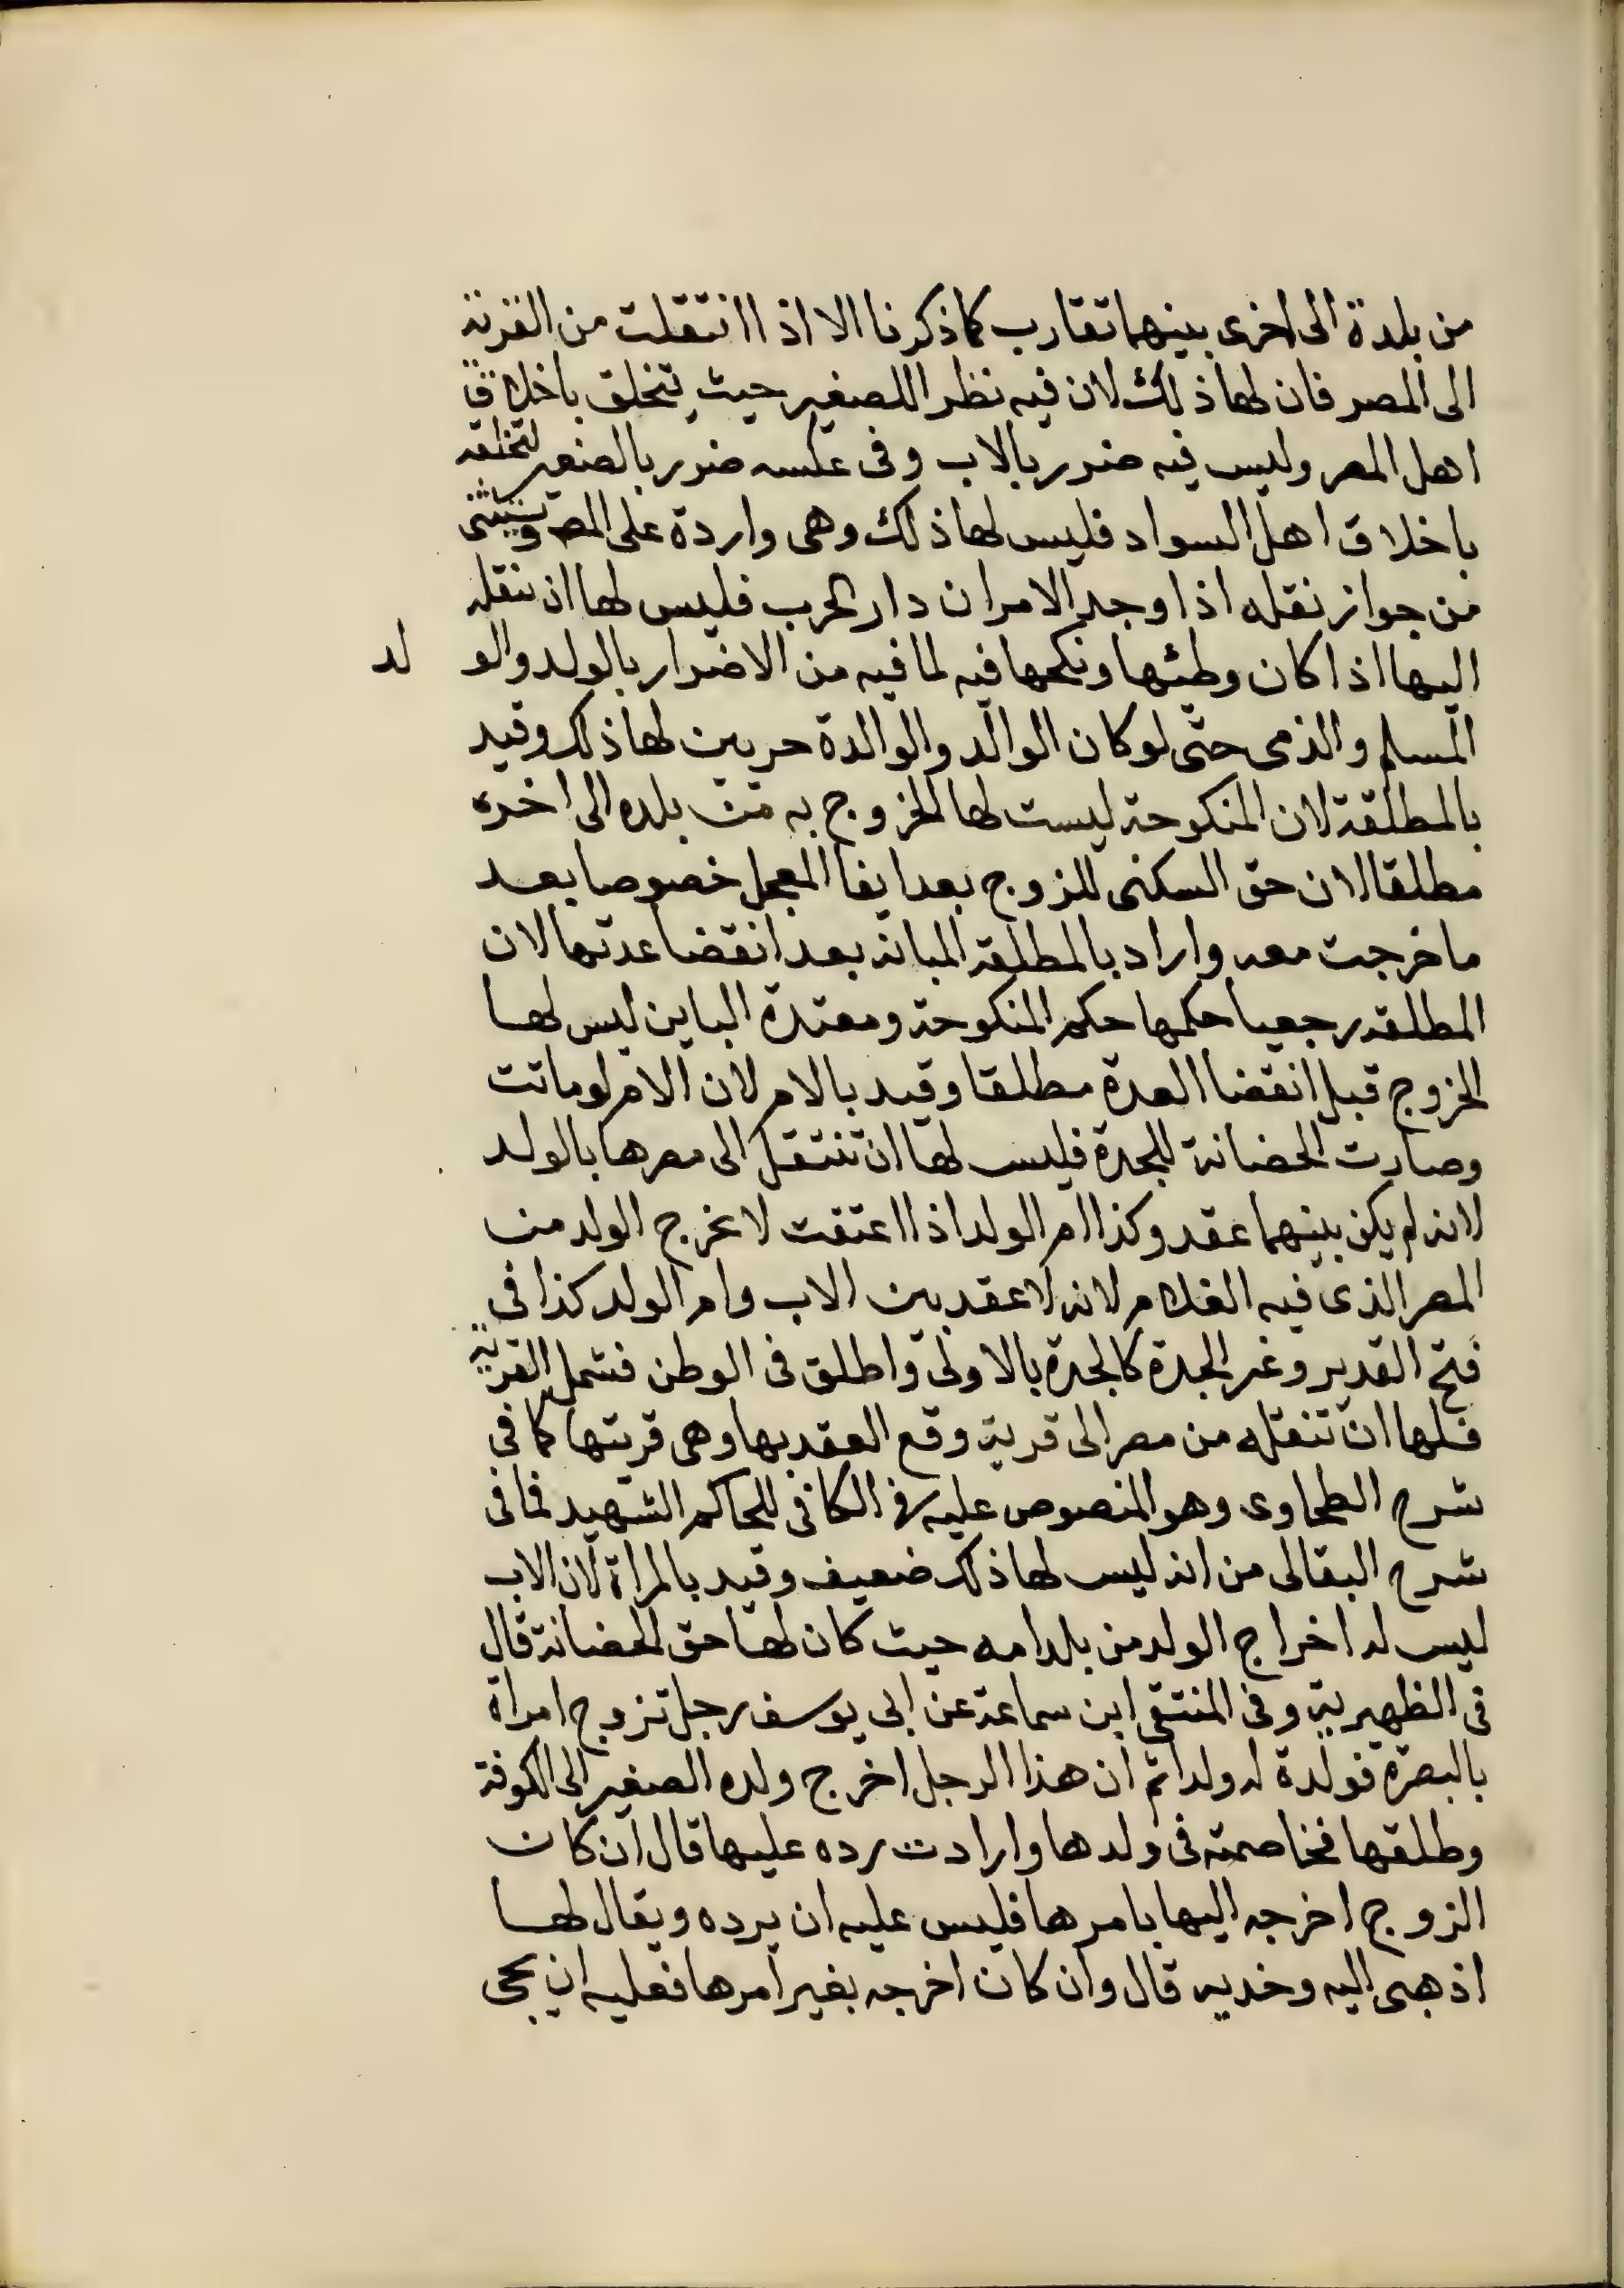 من بلدة الى اخرى بينهما تقارب كما ذكرنا الا اذا انتقلت من القرية
الى المصر فان لها ذلك لان فيه نظرا للصغير حيث يتخلق باخلاق
اهل المصر وليس فيه ضرر بالاب وفى عكسه ضرر بالصغير لتخلقه
باخلاق اهل السواد فليس لها ذلك وهى واردة على المص ويستثنى
من جواز نقله اذا وجد الامران دار الحرب فليس لها ان تنقله
اليها اذا كان وطئها ونكحها فيه لما فيه من الاضرار بالولد والو لد
المسلم والذمى حتى لو كان الوالد والوالدة حربين لها ذلك وقيد
بالمطلقة لان المنكوحة ليست لها الخروج به من بلده الى اخره
مطلقا لان حق السكنى للزوج بعد ايفا المعجل خصوصا بعد
ما خرجت معه واراد بالمطلقة المبانه بعد انقضا عدتها لان
المطلقه رجعيا حكمها حكم المنكوحة ومعتدة الباين ليس لها
الخروج قبل انقضا العدة مطلقا وقيد بالام لان الام لو ماتت
وصارت الحضانة للجدة فليس لها ان تنتقل الى مصرها بالولد
لانه لم يكن بينهما عقد وكذا ام الولد اذا اعتقت لا تخرج الولد من
المصر الذى فيه الغلام لانه لا عقد بين الاب وام الولد كذا فى
فتح القدير وغير الجدة كالجدة بالاولى واطلق فى الوطن فشمل القرية
فلها ان تنقله من مصر الى قرية وقع العقد بها وهى قريتها كما فى
شرح الطحاوى وهو المنصوص عليه فى الكافى للحاكم الشهيد فما فى
شرح البقالى من انه ليس لها ذلك ضعيف وقيد بالمراة لان الاب
ليس له اخراج الولد من بلد امه حيث كان لها حق الحضانة قال
فى الظهيرية وفى المنتقى ابن سماعة عن ابى يوسف رجل تزوج امراة
بالبصرة فولدة له ولدا ثم ان هذا الرجل اخرج ولده الصغير الى الكوفة
وطلقها فخاصمته فى ولدها وارادت رده عليها قال ان كان
الزوج اخرجه اليها بامرها فليس عليه ان يرده ويقال لها
اذهبى اليه وخديه قال وان كان اخرجه بغير امرها فعليه ان يجى